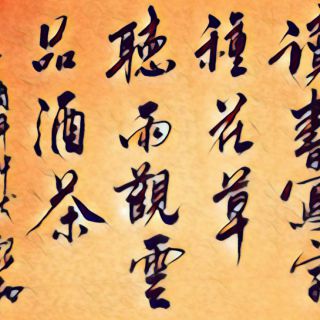 讀書寫字
種花草
聽雨觀雲
品酒茶